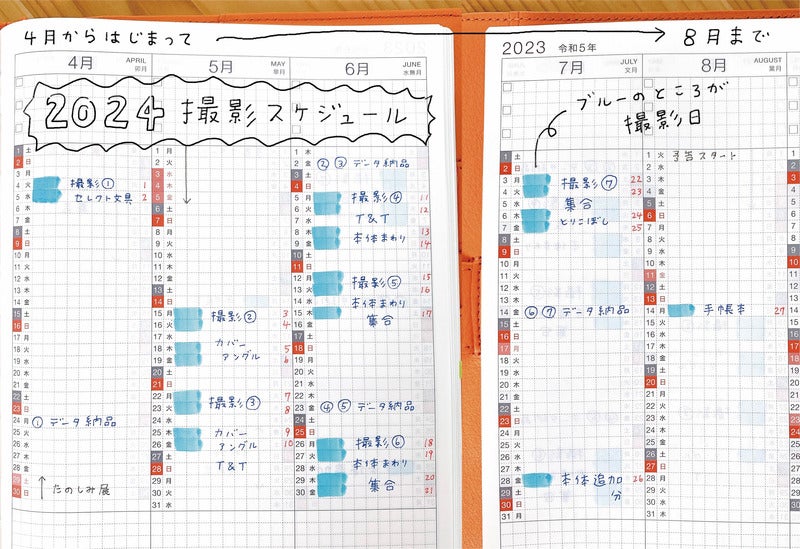 4月からはじまって
8月まで
4月 APRIL 卯月
5月 MAY 皐月
6月 JUNE 水無月
2024 撮影スケジュール
1 土
2 日
3 月
4 火 撮影① 1
5 水 セレクト文具 2
6 木
7 金
8 土
9 日
10 月
11 火
12 水
13 木
14 金
15 土
16 日
17 月
18 火
19 水
20 木
21 金
22 土
23 日
24 月 ①データ納品
25 火
26 水
27 木
28 金
29 土 たのしみ展
30 日
1 月
2 火
3 水
4 木
5 金
6 土
7 日
8 月
9 火
10 水
11 木
12 金
13 土
14 日
15 月 撮影② 3
16 火 4
17 水 カバー
18 木 アングル 5
19 金 6
20 土
21 日
22 月 撮影③ 7
23 火 8
24 水
25 木 カバー 9
26 金 アングル 10
27 土 T&T
28 日
29 月
30 火
31 水
1 木
2 金 ②③データ納品
3 土
4 日
5 月 撮影④ 11
6 火 12
7 水 T&T
8 木 本体まわり 13
9 金 14
10 土
11 日
12 月 撮影⑤ 15
13 火 16
14 水 本体まわり
15 木 集合 17
16 金
17 土
18 日
19 月
20 火
21 水
22 木
23 金 ④⑤データ納品
24 土
25 日
26 月 撮影⑥ 18
27 火 19
28 水 本体まわり
29 木 集合 20
30 金 21
2023 令和5年
7月 JULY 文月
8月 AUGUST 葉月
ブルーのところが
撮影日
1 土
2 日
3 月 撮影⑦ 22
4 火 23
5 水 集合
6 木 とりこぼし 24
7 金 25
8 土
9 日
10 月
11 火
12 水
13 木
14 金 ⑥⑦データ納品
15 土
16 日
17 月
18 火
19 水
20 木
21 金
22 土
23 日
24 月
25 火
26 水
27 木
28 金 本体追加 26
29 土 分
30 日
31 月
1 火 予告スタート
2 水
3 木
4 金
5 土
6 日
7 月
8 火
9 水
10 木
11 金
12 土
13 日
14 月 手帳本 27
15 火
16 水
17 木
18 金
19 土
20 日
21 月
22 火
23 水
24 木
25 金
26 土
27 日
28 月
29 火
30 水
31 木